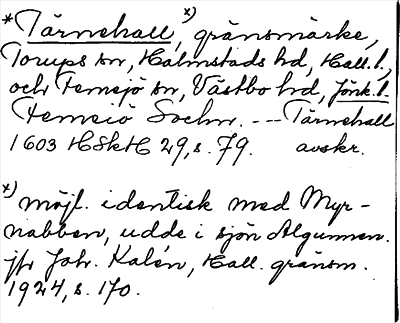 *Tärnehall, x) gränsmärke,
Torups sn, Halmstads hd, Hall. l.,
och Femsjö sn, Västbo hd, Jönk. l.
Femsiö Sochn. --- Tärnehall
1603 HSkH 29, s. 79. avskr.
x) möjl. identisk med Myr-
nabben, udde i sjön Algunnen.
jfr Joh. Kalén, Hall. gränsm.
1924, s. 170.